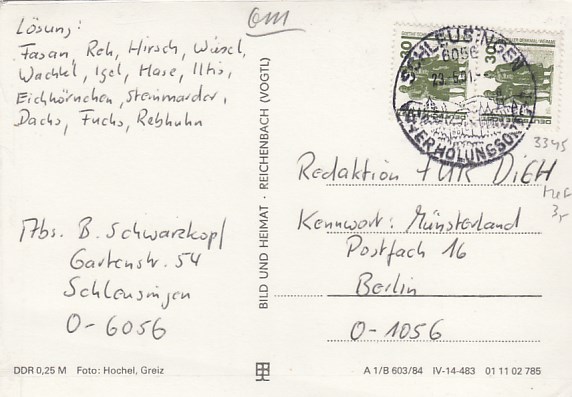 Om
Lösung:
Fasan, Reh, Hirsch, Wiesel,
Wachtel, Igel, Hase, Iltis,
Eichhörnchen, Steinmarder,
Dachs, Fuchs, Rebhuhn
SCHLEUSINGEN
6056
ERHOLUNGSORT
30
3345
Redaktion FÜR DICH
Kennwort: Münsterland
Postfach 16
Berlin
O-1056
Abs. B. Schwarzkopf
Gartenstr. 54
Schleusingen
O-6056
BILD UND HEIMAT · REICHENBACH (VOGTL)
DDR 0,25 M Foto: Hochel, Greiz
A 1/B 603/84 IV-14-483 01 11 02 785